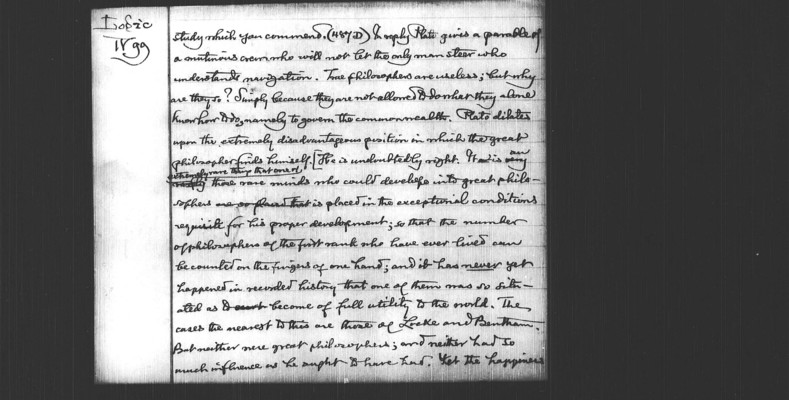 Logic
IV 99
study which you commend. (487D) In reply Plato gives a parable of
a mutinous crew who will not let the only man steer who
understands navigation. True philosophers are useless; but why
are they so? Simply because they are not allowed to do what they alone
know how to do, namely to govern the commonwealth. Plato dilates
upon the extremely disadvantageous position in which the great
philosopher finds himself. [He is undoubtedly right. It is an
extremely rare thing that one of
those rare minds who could develope into great philo-
sophers are so placed that is placed in the exceptional conditions
requisite for his proper development; so that the number
of philosophers of the first rank who have ever lived can
be counted on the fingers of one hand; and it has never yet
happened in recorded history that one of them was so situ-
ated as to become of full utility to the world. The
cases the nearest to this are those of Locke and Bentham.
But neither were great philosophers; and neither had so
much influence as he ought to have had. Yet the happiness